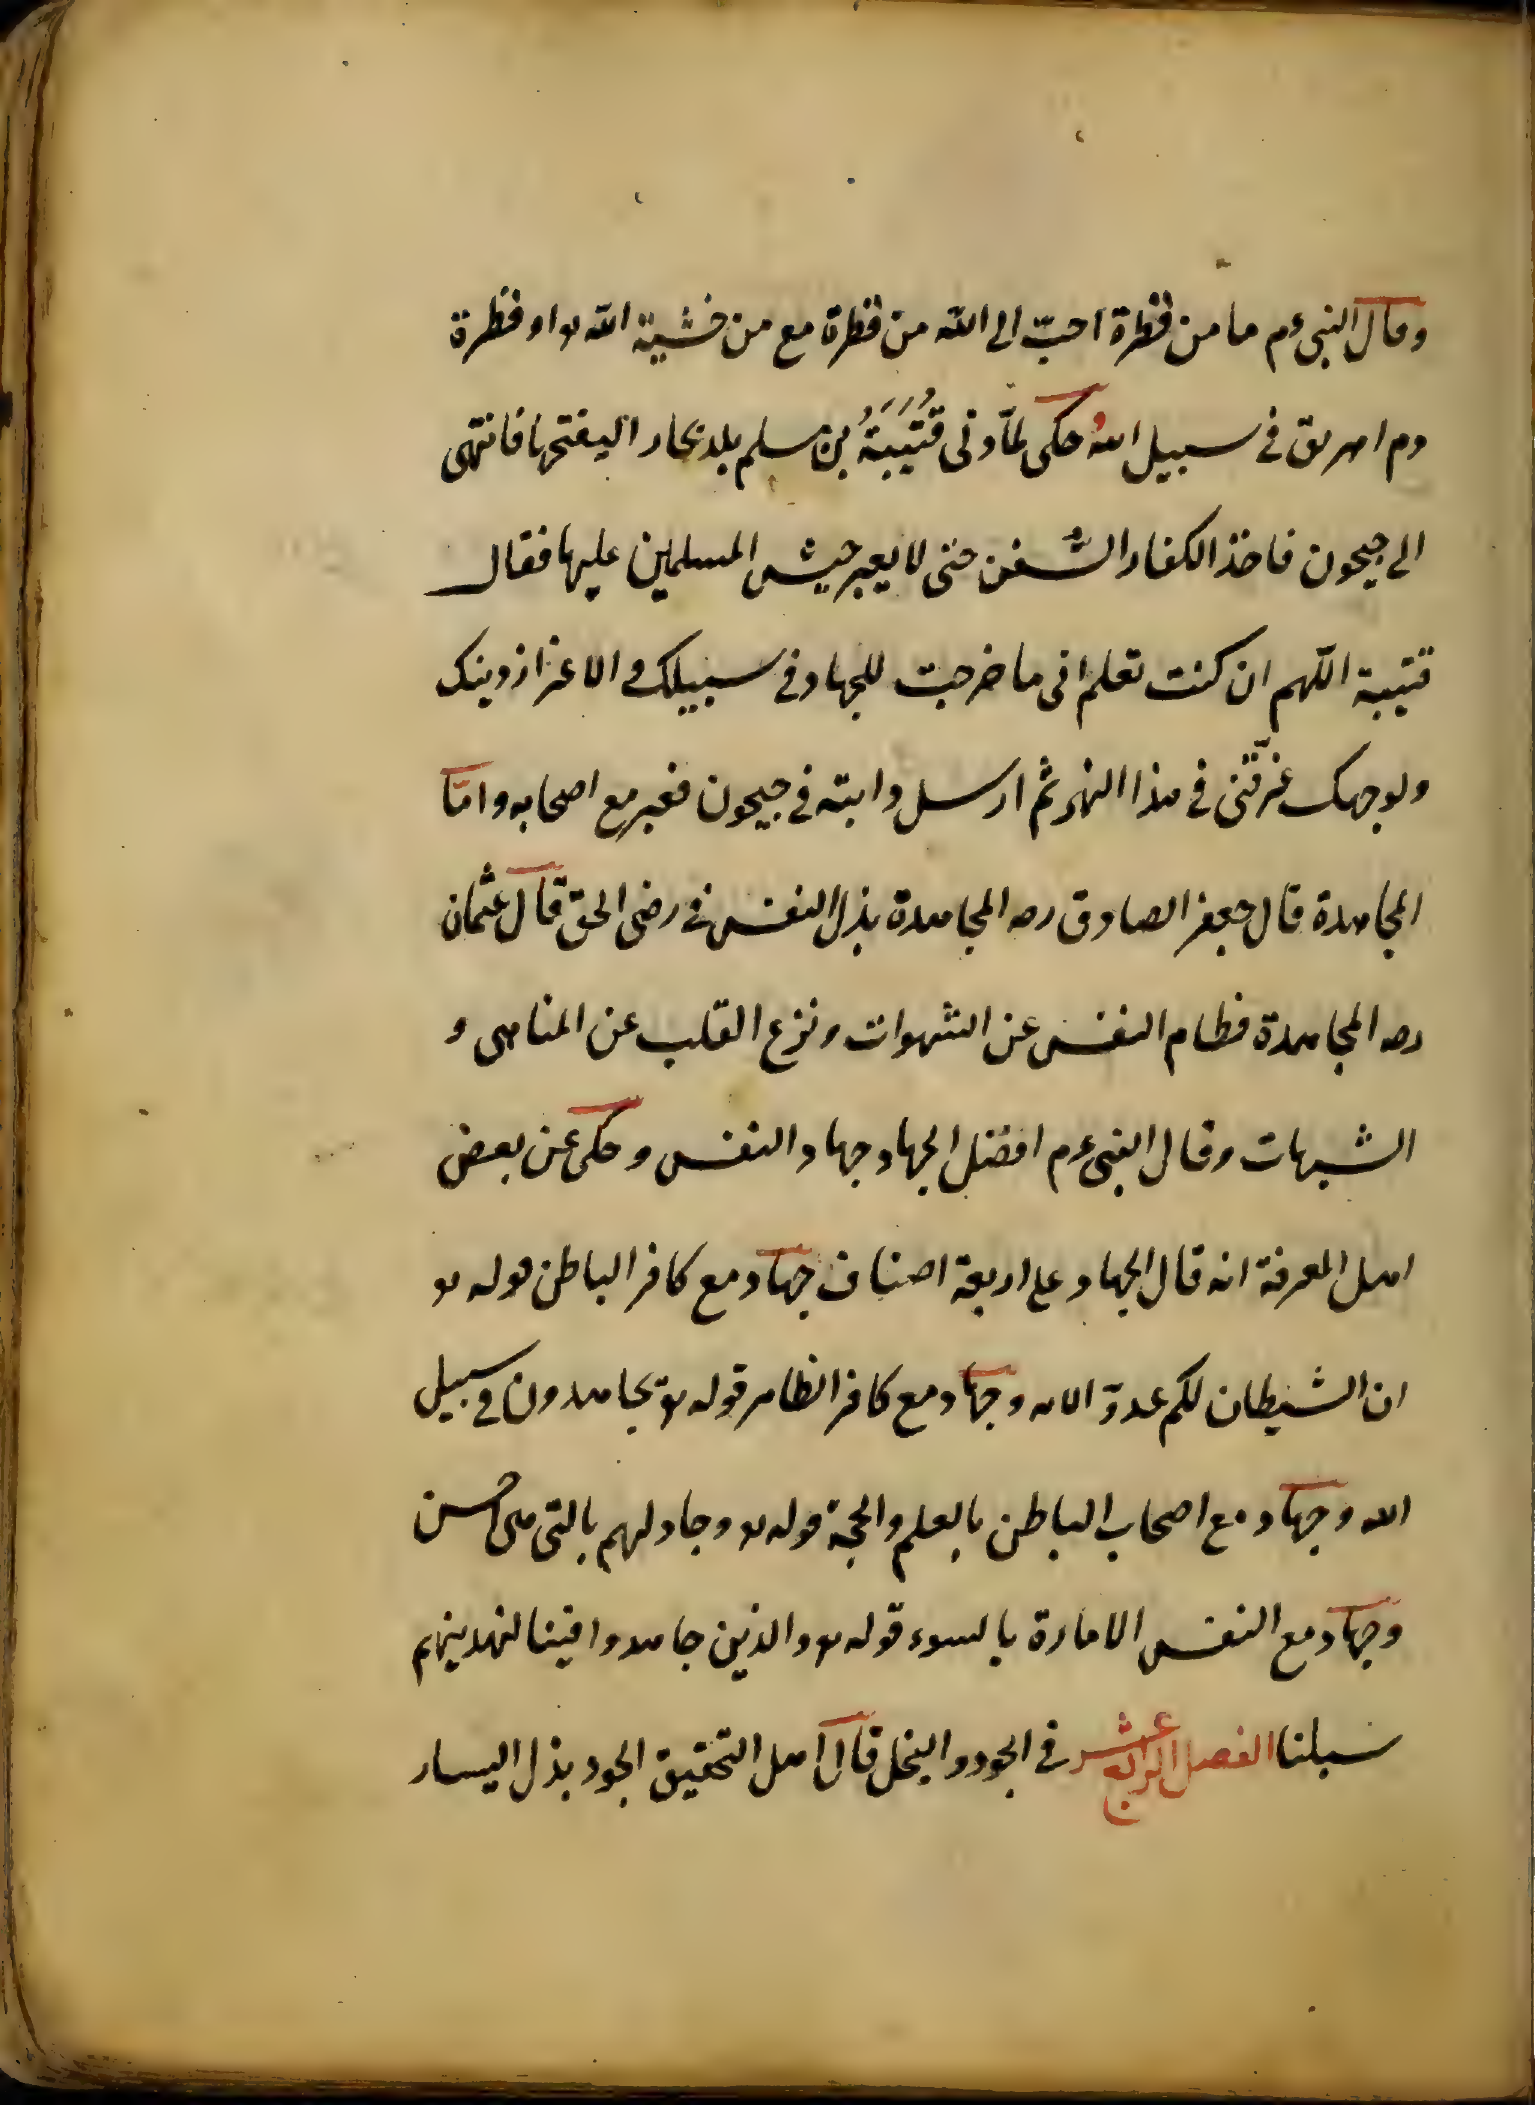 وقال النبى عم ما من قطرة احبّ الى الله من قطرة مع من خشية الله تع او قطرة
دم اهريق فى سبيل الله حكى لمّا ولى قُتَيْبَةُ بن مسلم بلد بخارا ليفتحها فانتهى
الى جيحون فاخذ الكفار السُّفن حتى لا يعبر جيش المسلمين عليها فقال
قتيبة اللّهم ان كنت تعلم انى ما خرجت للجهاد فى سبيلك و الا عزاز دينك
ولوجهك غرّقنى فى هذا النهر ثم ارسل دابته فى جيحون فعبر مع اصحابه وامّا
المجاهدة قال جعفر الصادق رضه المجاهدة بذل النفس فى رضى الحق قال عثمان
رضه المجاهدة فطام النفس عن الشهوات ونزع القلب عن المناهى و
الشبهات وقال النبى عم افضل الجهاد جهاد النفس وحكى عن بعض
اهل المعرفة انه قال الجهاد على اربعة اصناف جهاد مع كافر الباطن قوله تع
ان الشيطان لكم عدوّ الايه وجهاد مع كافر الظاهر قوله تع يجاهدون فى سبيل
الله وجهاد مع اصحاب الباطن بالعلم والحجة قوله تع وجادلهم بالتى هى احسن
وجهاد مع النفس الامارة بالسوء قوله تع والذين جاهدوا فينا لنهدينهم
سبلنا الفصل الرابع عشر فى الجود والبخل قال اهل التحقيق الجود بذل اليسار